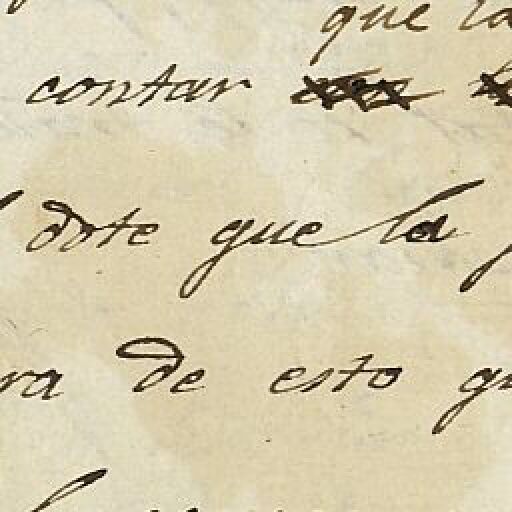 que la
contar
dote que la
ra de esto qu